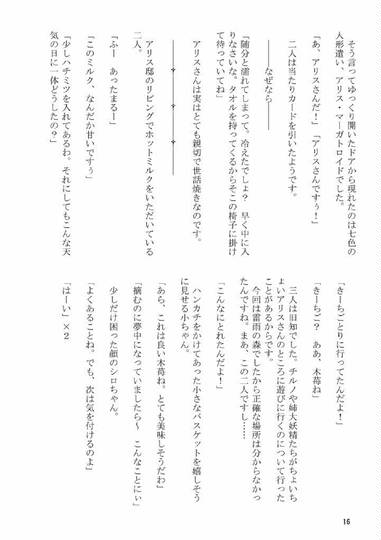 そう言ってゆっくり開いたドアから現れたのは七色の
人形遣い、アリス・マーガトロイドでした。
「あ、アリスさんだ!」「アリスさんですぅ!」
二人は当たりカードを引いたようです。
――なぜなら――
「随分と濡れてしまって。冷えたでしょ? 早く中に入
りなさいな。タオルを持ってくるからそこの椅子に掛け
て待っていてね」
アリスさんは実はとても親切で世話焼きなのです。
アリス邸のリビングでホットミルクをいただいている
二人。
「ふー あったまるー」
「このミルク、なんだか甘いですぅ」
「少しハチミツを入れてあるわ、それにしてもこんな天
気の日に一体どうしたの?」
「きーちごとりに行ってたんだよ!」
「きーちご? ああ、木苺ね」
三人は旧知でした。チルノや姉大妖精たちがちょいち
ょいアリスさんのところに遊びに行くのについて行った
ことがあるからです。
今回は雷雨の森でしたから正確な場所は分からなかっ
たんですね。まあ、この二人ですし……
「こんなにとれたんだよ!」
ハンカチをかけてあった小さなバスケットを嬉しそう
に見せる小ちゃん。
「あら、これは良い木苺ね。とても美味しそうだわ」
「摘むのに夢中になっていましたら~ こんなことにぃ」
少しだけ困った顔のシロちゃん。
「よくあることね。でも、次は気を付けるのよ」
「はーい」×2
16